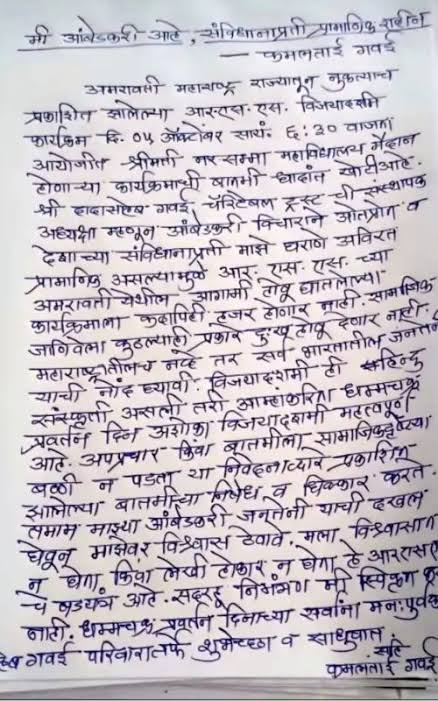 मी आंबेडकरी आहे, संविधानाप्रती प्रामाणिक राहीन
— कमलताई गवई
अमरावती महाराष्ट्र राज्यातून नुकत्याच
प्रकाशित झालेल्या आर.एस.एस. विजयादशमी
कार्यक्रम दि. ०५ ऑक्टोबर सायं. ६:३० वाजता
आयोजीत श्रीमती नरसम्मा महाविद्यालय मैदान
होणाऱ्या कार्यक्रमाची बातमी धादांत खोटी आहे.
श्री दादासाहेब गवई चॅरिटेबल ट्रस्ट ची संस्थापक
अध्यक्षा म्हणून आंबेडकरी विचाराने ओतप्रोत व
देशाच्या संविधानाप्रती माझे घराणे अविरत
प्रामाणिक असल्यामुळे आर. एस. एस. च्या
अमरावती येथील आगामी होवू घातलेल्या
कार्यक्रमाला कदापिही हजर होणार नाही. सामाजिक
जाणिवेला कुठल्याही प्रकारे दुःख होवू देणार नाही.
महाराष्ट्रातीलच नव्हे तर सर्व भारतातील जनतेने
याची नोंद घ्यावी. विजयादशमी ही हिन्दु
संस्कृती असली तरी आम्हाकरिता धम्मचक्र
प्रवर्तन दिन अशोका विजयादशमी महत्वपूर्ण
आहे. अपप्रचार किंवा बातमीला सामाजिकदृष्ट्या
बळी न पडता या निवेदनाद्वारे प्रकाशित
झालेल्या बातमीच्या निषेध व धिक्कार करते.
तमाम माझ्या आंबेडकरी जनतेनी याची दखल
घेवून माझेवर विश्वास ठेवावे. मला विश्वासात
न घेता किंवा लेखी होकार न घेता हे आरएसएस
चे षडयंत्र आहे. सदरहू निमंत्रण मी स्विकृत
नाही. धम्मचक्र प्रवर्तन दिनाच्या सर्वांना मनःपूर्वक
गवई परिवारातर्फे शुभेच्छा व साधुवात
कमलताई गवई